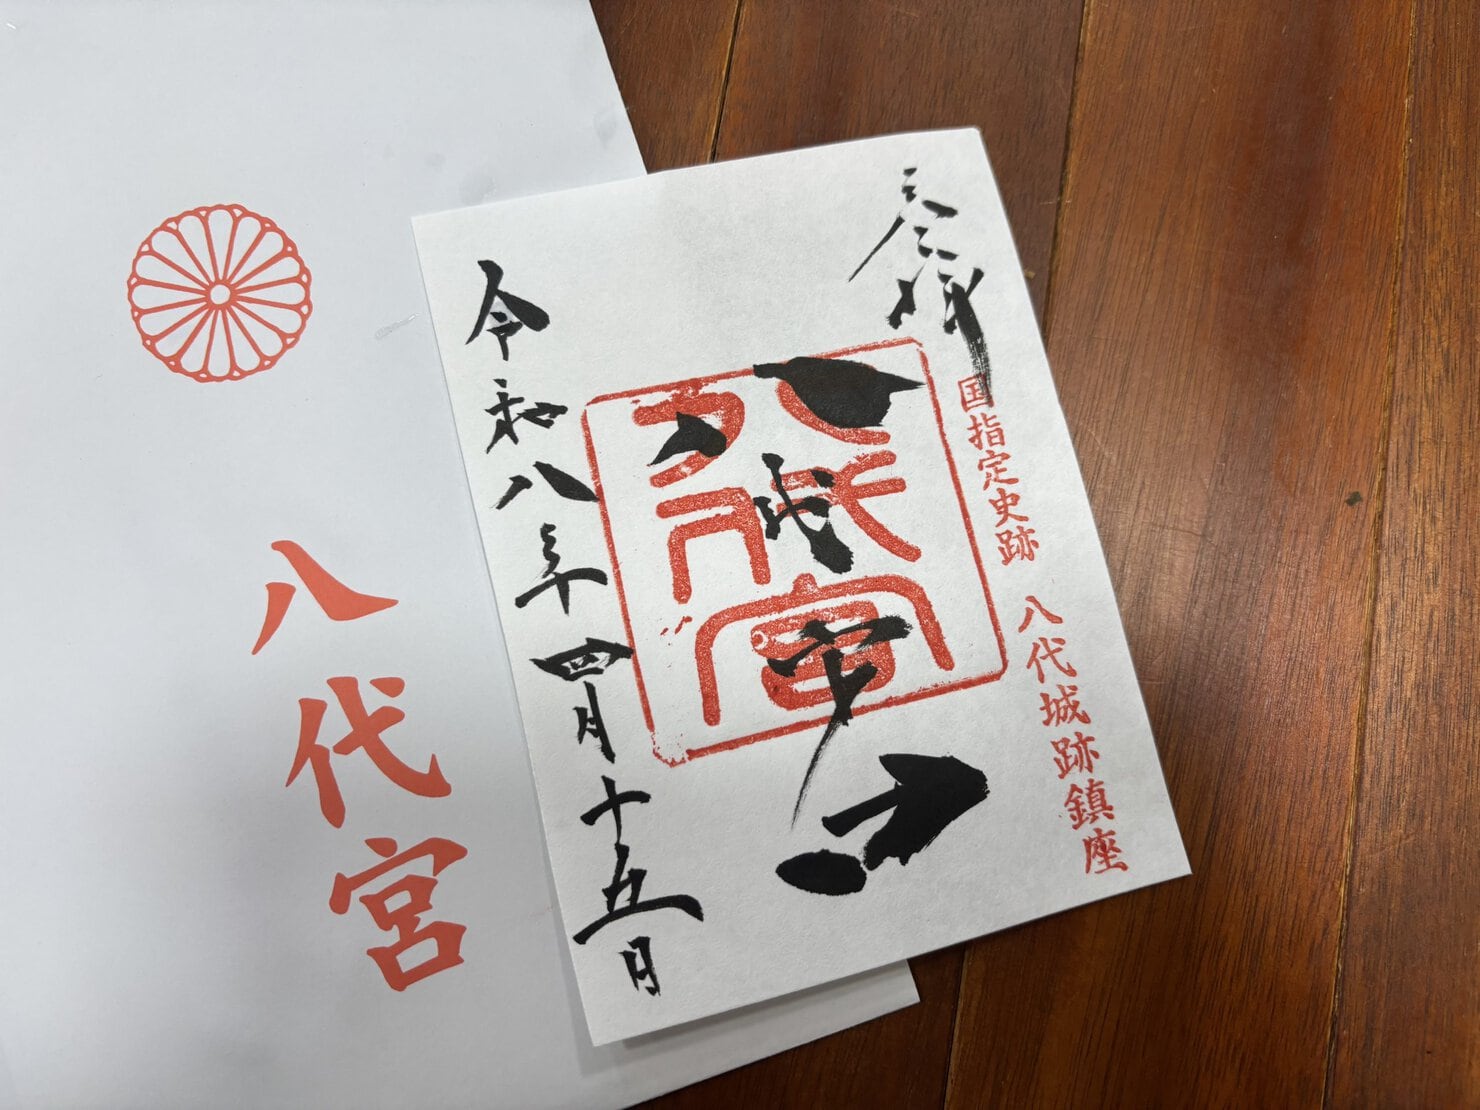 奉拝
国指定史跡 八代城跡鎮座
八代宮
八代宮
令和八年四月十五日
八代宮